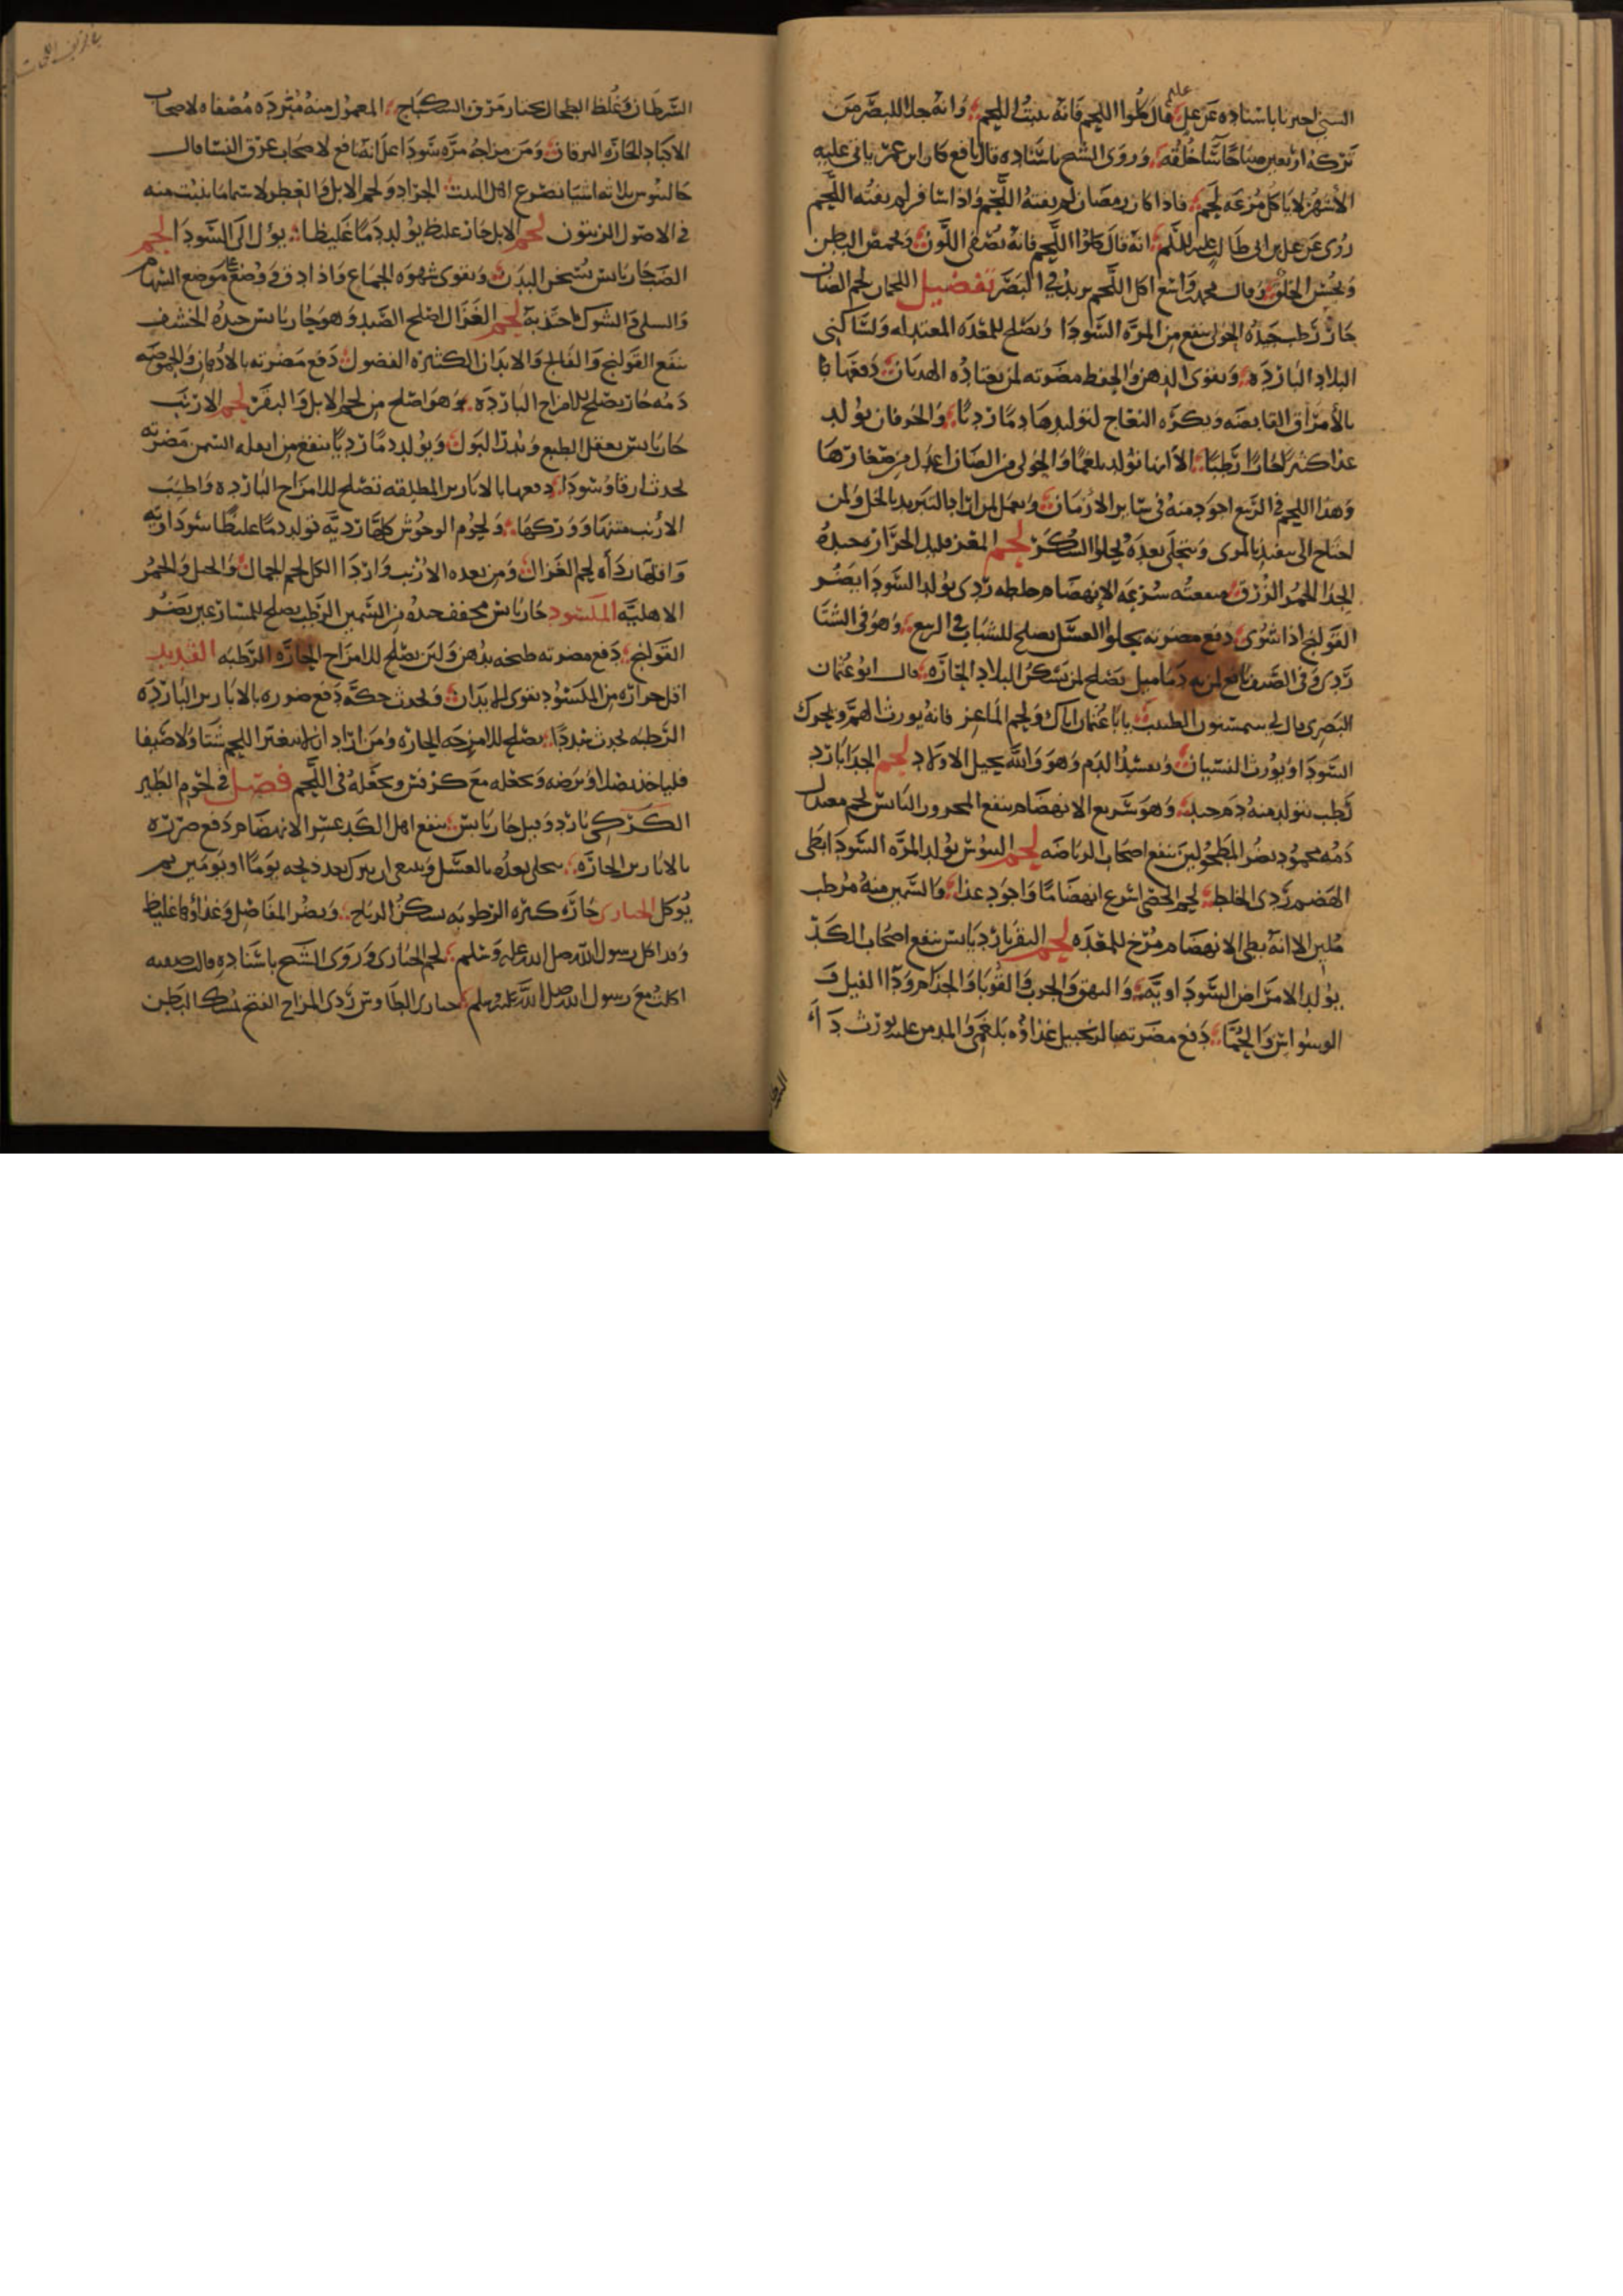 السني اخبرنا باسناده عن علي عليه قال كلوا اللحم فانه ينبت اللحم وانه جلا للبصر من
تركه اربعين صباحا ساخلقه وروى الشيخ باسناده قال نافع كان ابن عمر ياتي عليه
الاشهر لا ياكل مزعه لحم فاذا كان رمضان لم يفته اللحم واذا سافر لم يفته اللحم
روى عن علي بن ابي طالب عليه السلم انه قال كلوا اللحم فانه يصفى اللون ويخمص البطن
ويحسن الخلق وقال محمد واسع اكل اللحم يزيد في البصر تفضيل اللحمان لحم الضان
حار رطب جيده الحولى ينفع من المره السودا ويصلح للمعده المعتدله ولساكني
البلاد البارده ويقوى الذهن والحفظ مضرته لمن يعتاده الهديان دفعها با
بالأمراق القابضه ويكره النعاج لتوليدها دما رديا والخرفان يولد
غذا كثيرا حارا رطبا الا انها تولد بلغما والحولى من الضان اعدل من صغارها
وهذا اللحم في الربيع اجود منه في ساير الازمان ويعمل المرار بالتبريد بالخل ولمن
احتاج الى بالمرى ويتحلى بعده بحلوا السكر لحم المعز قليل الحراره جيده
الجدا الحمر الزرق منفعته سرعه الانهضام خلطه ردى يولد السودا يضر
القولنج اذا شوى دفع مضرته بحلوا العسل يصلح للشباب في الربيع وهو في الشتا
ردى وفي الصيف نافع لمن به دماميل يصلح لمن يسكن البلاد الحاره قال ابو عثمان
البصرى قال لى الطبيب يابا عثمان اياك ولحم الماعز فانه يورث الهم ويحرك
السودا ويورث النسيان ويفسد الدم وهو والله يخبل الاولاد لحم الجدا بارد
رطب يتولد منه دم جيد وهو سريع الانهضام ينفع المحرور الناس لحم معتدل
دمه محمود يضر المطحولين ينفع اصحاب الرياضه لحم التيوس يولد المره السودا بطى
الهضم ردى الخلط لحم الخصى اسرع انهضاما واجود غذا والسمين منه مرطب
ملين الا انه بطى الانهضام مرخ للمعده لحم البقر بارد يابس ينفع اصحاب الكد
يولد الامراض السوداويه والبهق والجرب والقوبا والجذام ودا الفيل و
الوسواس والحما دفع مضرته بالزنجبيل غذاؤه بلغمى والمدمن عليه يورث دا
السرطان وغلظ الطحال يختار مرق السكباج المعمول منه مبرده مصفاه لاصحاب
الاكباد الحاره اليرقان ومن مزاجه مره سودا على انه نافع لاصحاب عرق النسا قال
جالينوس ثلاثه اشيا تصرع اهل البيت الجراد ولحم الابل والفطر لا سيما ما ينبت منه
في الاصول الزيتون لحم الابل حار غليظ يولد دما غليظا يؤل الى السودا لحم
الضب حار يابس يسخن البدن ويقوى شهوه الجماع واذا دق ووضع على موضع السهام
والسلى والشوك جذبه لحم الغزال اصلح الصيد وهو حار يابس جيده الخشف
ينفع القولنج والفالج والابدان الكثيره الفضول دفع مضرته بالادهان والحموضه
دمه حار يصلح للامزاج البارده وهو اصلح من لحم الابل والبقر لحم الارنب
حار يابس يعقل الطبع ويدر البول ويولد دما رديا ينفع من السمن مضرته
يحدث ارقا وسودا دفعها بالابازير الملطفه تصلح للامزاج البارده واطيب
الارنب متنها ووركها ولحوم الوحوش كلها رديه تولد دما غليظا سوداويه
واقلها ردأه لحم الغزال ومن بعده الارنب واردا الكل لحم الجمال والخيل والحمر
الاهليه المكسود حار يابس مجفف جيده من السمين الرطب يصلح للمسافرين يضر
القولنج دفع مضرته طبخه بدهن ولبن يصلح للامزاج الحاره الرطبه القديد
اقل حراره من المكسود يقوى الابدان ويحدث حكه دفع ضرره بالابازير البارده
الرطبه يصلح للامزجه الحاره ومن اراد ان لا يتغير اللحم شتا ولا صيفا
فلياخذ بصلا ويرضه ويخلطه مع كرفس ويجعله في اللحم فصل في لحوم الطير
الكركي بارد وقيل حار يابس ينفع اهل الكد عسر الانهضام دفع ضرره
بالابازير الحاره يتحلى بعده بالعسل وينبغي ان يترك بعد ذبحه يوما او يومين ثم
يوكل الحبارى حاره كثيره الرطوبه تسكن الرياح ويضر المفاصل وغذاؤها غليظ
وقد اكل رسول الله صلى الله عليه وسلم لحم الحبارى وروى الشيخ باسناده قال سفينه
اكلت مع رسول الله صلى الله عليه وسلم حبارى الطاوس ردى المزاج